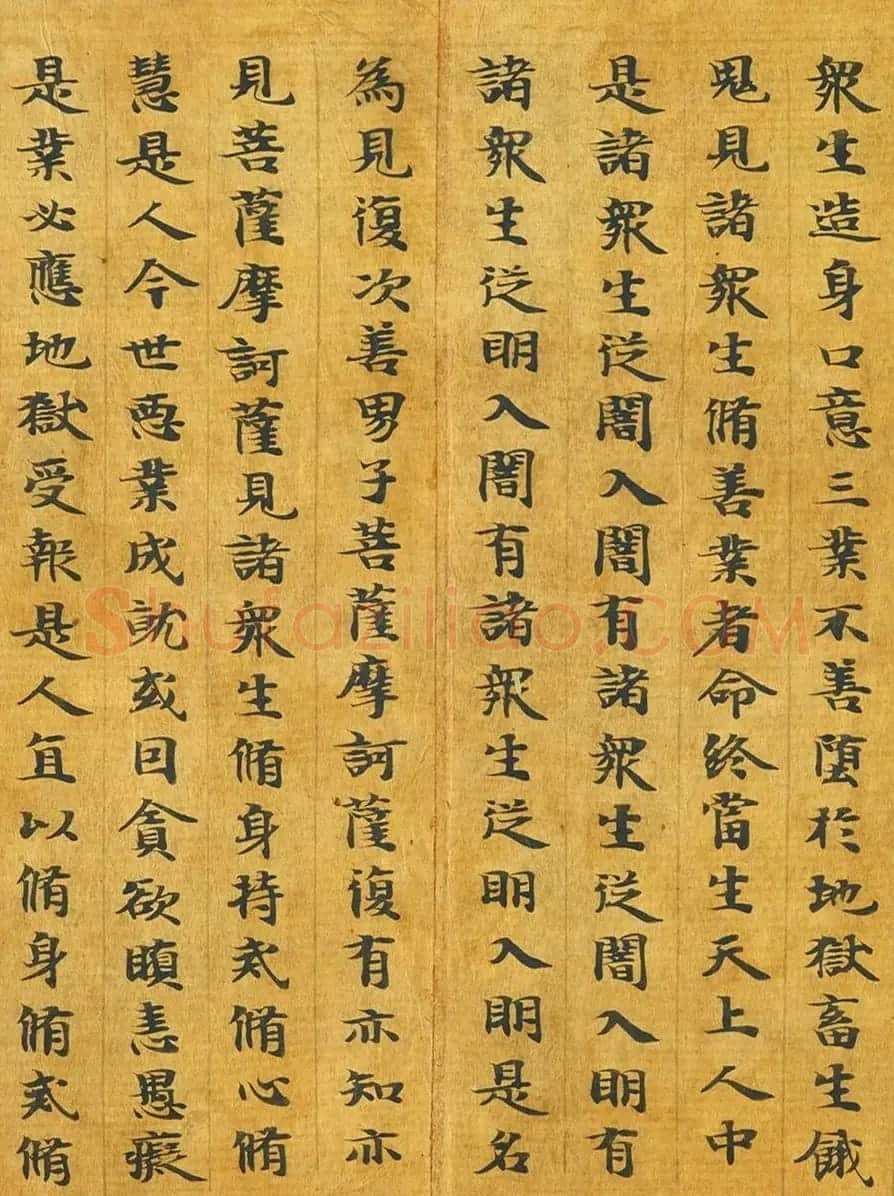 眾生造身口意三業不善墮於地獄畜生餓
鬼見諸眾生脩善業者命終當生天上人中
是諸眾生従闇入闇有諸眾生従闇入明有
諸眾生従明入闇有諸眾生従明入明是名
為見復次善男子菩薩摩訶薩復有亦知亦
見菩薩摩訶薩見諸眾生脩身持戒脩心脩
慧是人今世惡業成就或因貪欲瞋恚愚癡
是業必應地獄受報是人直以脩身脩戒脩
Shufaziliao.COM